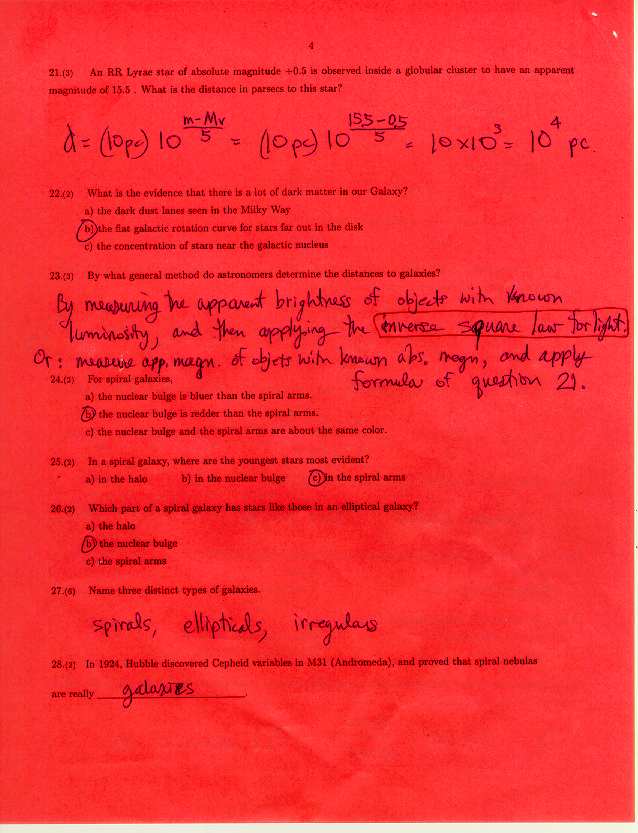 4
21.(3) An RR Lyrae star of absolute magnitude +0.5 is observed inside a globular cluster to have an apparent
magnitude of 15.5 . What is the distance in parsecs to this star?
d = (10pc) 10^((m-Mv)/5) = (10pc) 10^((15.5-0.5)/5) = 10x10^3 = 10^4 pc.
22.(2) What is the evidence that there is a lot of dark matter in our Galaxy?
a) the dark dust lanes seen in the Milky Way
b) the flat galactic rotation curve for stars far out in the disk
c) the concentration of stars near the galactic nucleus
23.(3) By what general method do astronomers determine the distances to galaxies?
By measuring the apparent brightness of objects with known
luminosity, and then applying the inverse square law for light.
Or: measure app. magn. of objets with known abs. magn, and apply
formula of question 21.
24.(2) For spiral galaxies,
a) the nuclear bulge is bluer than the spiral arms.
b) the nuclear bulge is redder than the spiral arms.
c) the nuclear bulge and the spiral arms are about the same color.
25.(2) In a spiral galaxy, where are the youngest stars most evident?
a) in the halo b) in the nuclear bulge c) in the spiral arms
26.(2) Which part of a spiral galaxy has stars like those in an elliptical galaxy?
a) the halo
b) the nuclear bulge
c) the spiral arms
27.(6) Name three distinct types of galaxies.
spirals, ellipticals, irregulars
28.(2) In 1924, Hubble discovered Cepheid variables in M31 (Andromeda), and proved that spiral nebulas
are really galaxies.